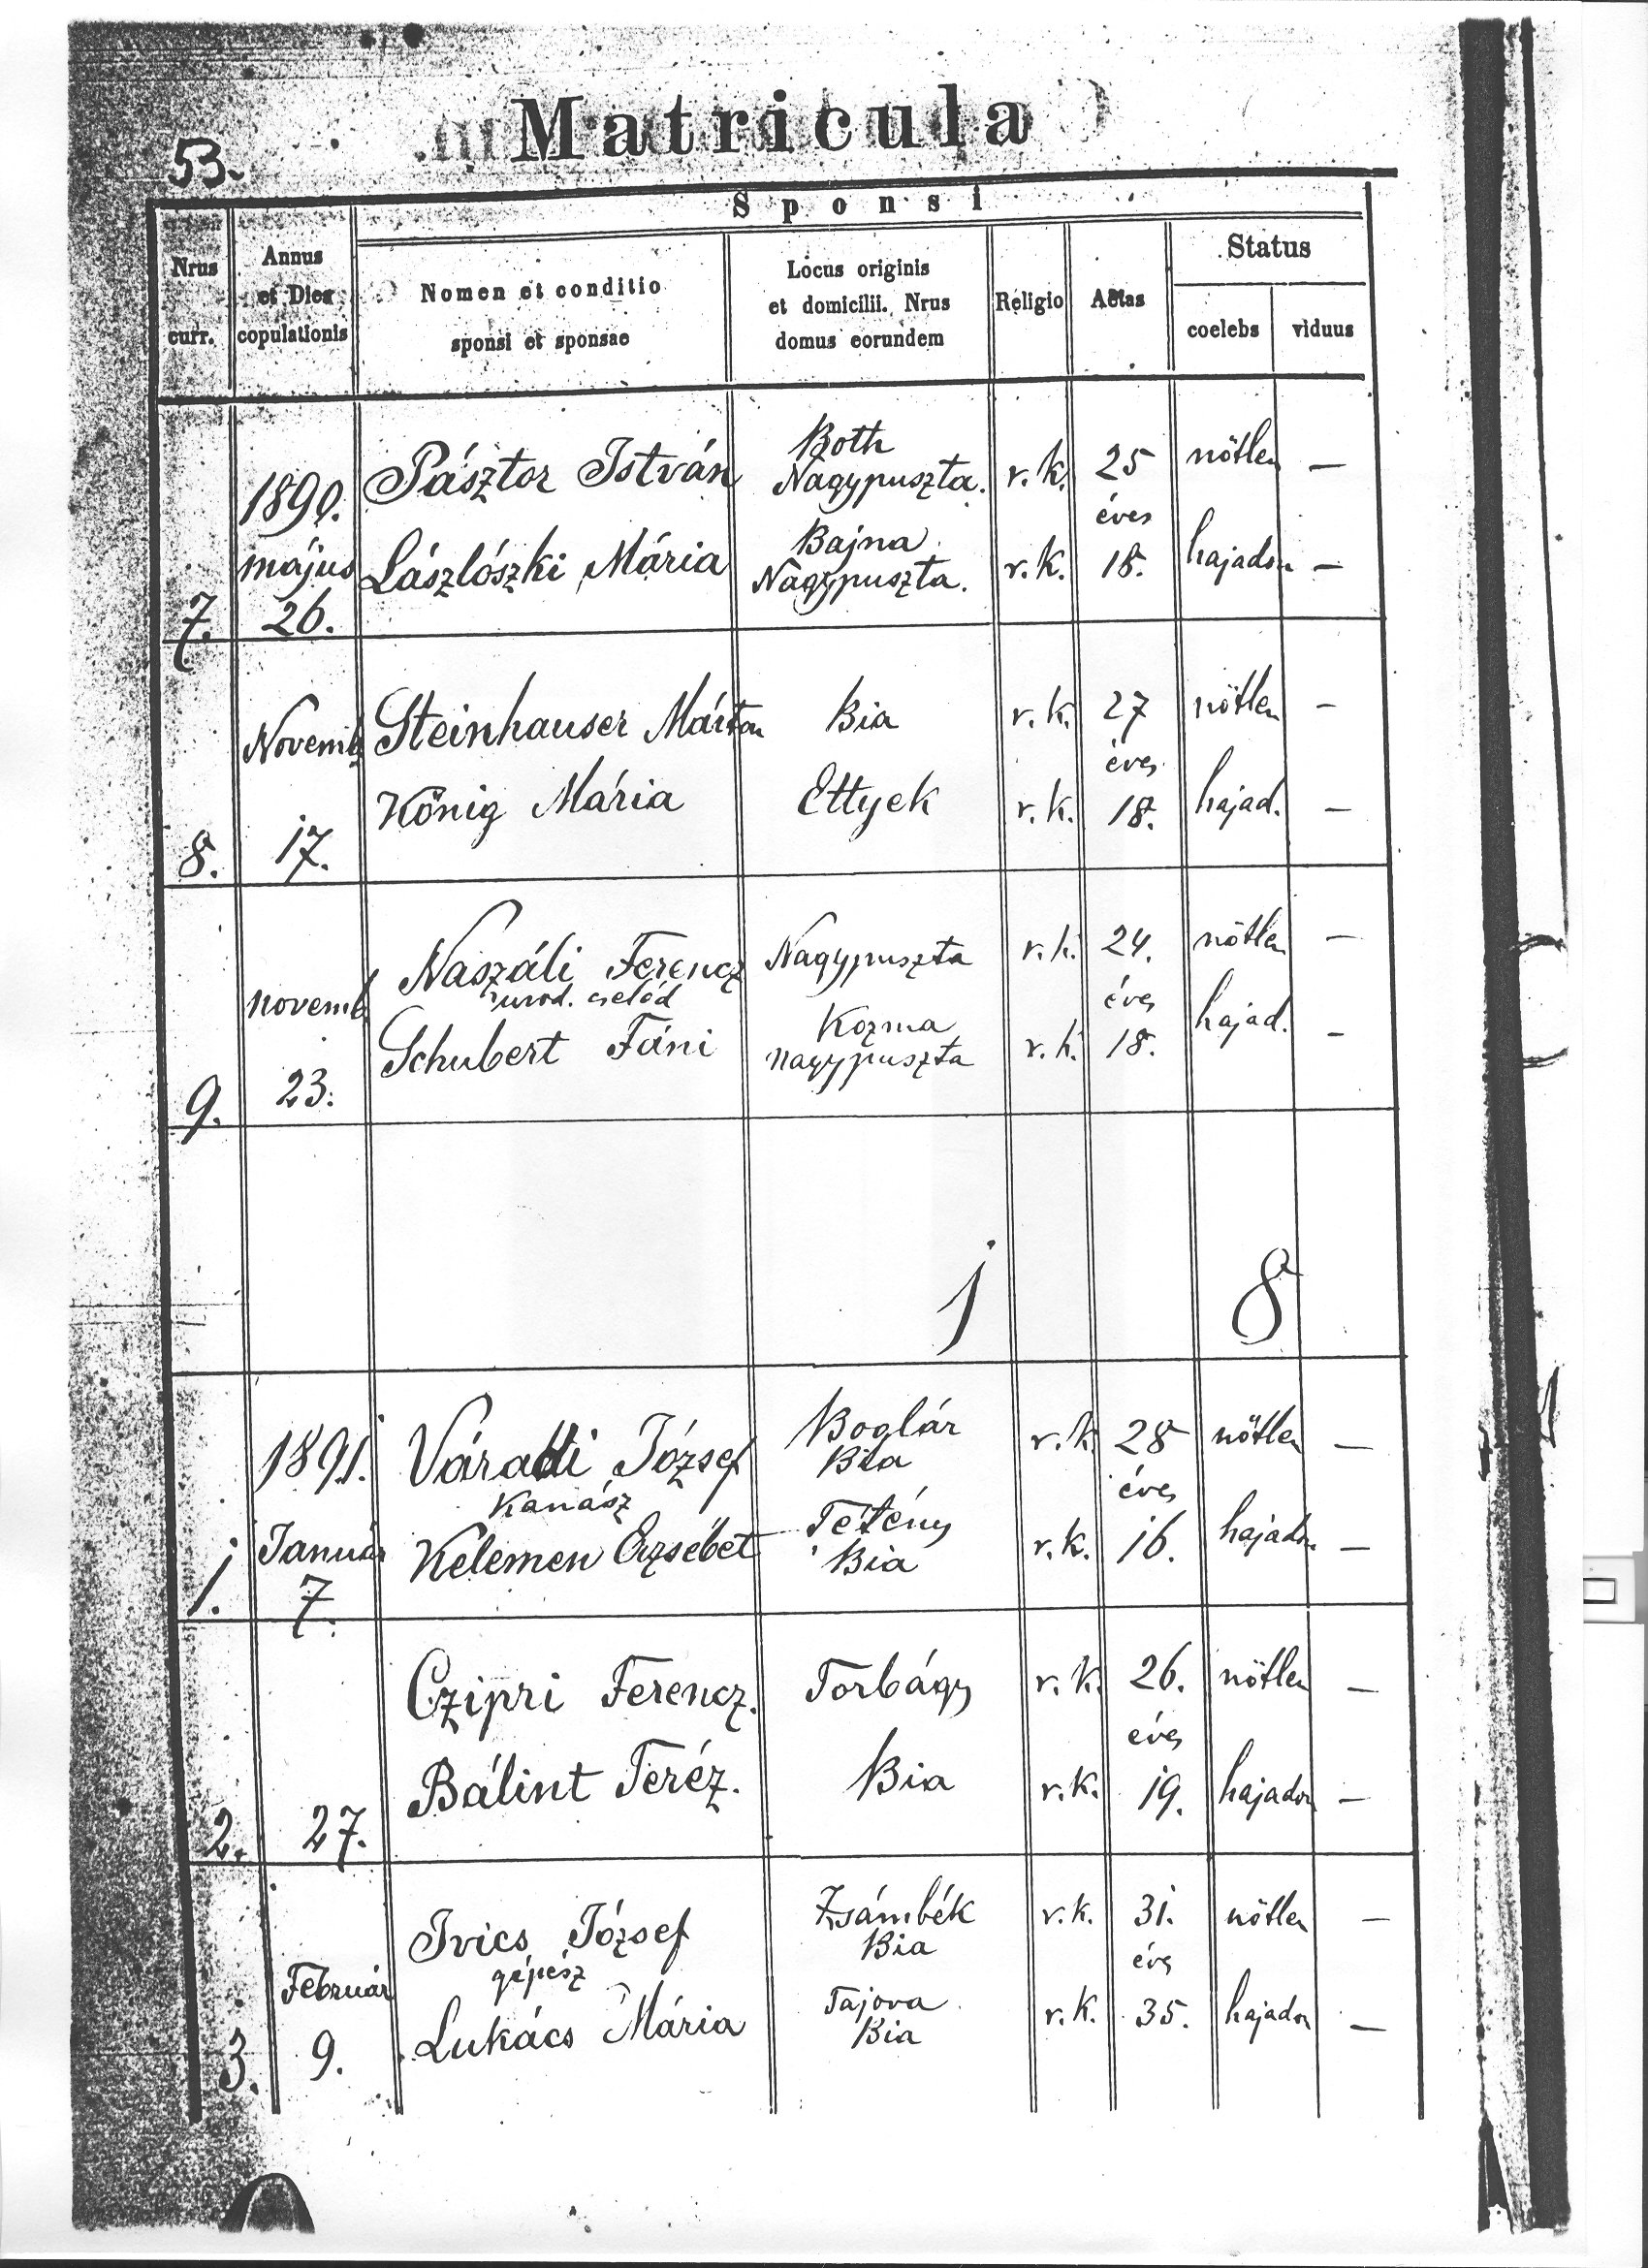 Matricula
53.
Sponsi
Nrus curr.
Annus et Dies copulationis
Nomen et conditio sponsi et sponsae
Locus originis et domicilii. Nrus domus eorundem
Religio
Aetas
Status
coelebs
viduus
7.
1890. május 26.
Pásztor István
Both Nagypuszta.
r. k.
25 éves
nőtlen
—
Lászlószki Mária
Bajna Nagypuszta.
r. k.
18.
hajadon
—
8.
Novemb 17.
Steinhauser Márton
Bia
r. k.
27 éves
nőtlen
—
König Mária
Ettyek
r. k.
18.
hajad.
—
9.
novemb 23.
Naszáli Ferencz
urod. cseléd
Nagypuszta
r. k.
24. éves
nőtlen
—
Schubert Fáni
Kozma nagypuszta
r. k.
18.
hajad.
—
1 8
1.
1891. Január 7.
Váradi József
Kanász
Boglár Bia
r. k.
28 éves
nőtlen
—
Kelemen Erzsébet
Tétény Bia
r. k.
16.
hajadon
—
2.
27.
Czipri Ferencz.
Torbágy
r. k.
26. éves
nőtlen
—
Bálint Teréz.
Bia
r. k.
19.
hajadon
—
3.
Február 9.
Ivics József
gépész
Zsámbék Bia
r. k.
31. éves
nőtlen
—
Lukács Mária
Tajova Bia
r. k.
35.
hajadon
—